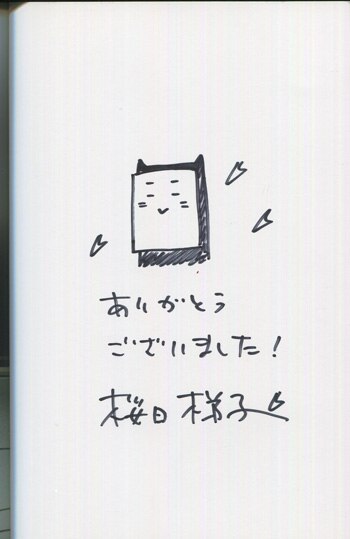 ありがとう
ございました！
桜日 梯子